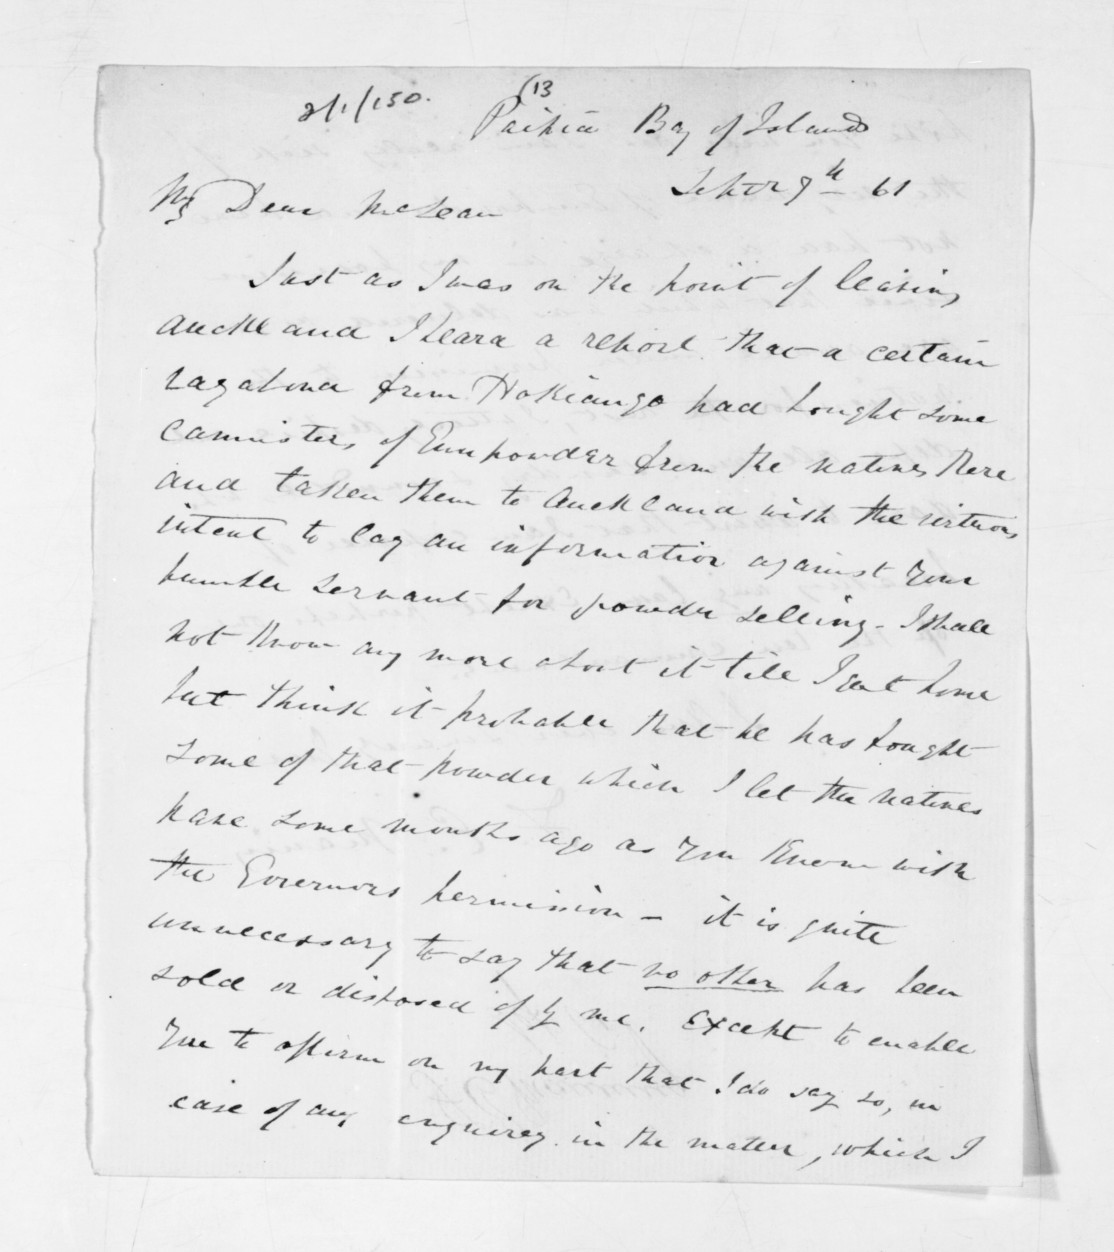 2/1/150. (13
Paihia Bay of Islands
Septr 9th 61
My Dear McLean
Just as I was on the point of leaving
Auckland I heard a report that a certain
vagabond from Hokianga had bought some
cannisters of Gunpowder from the natives there
and taken them to Auckland with the virtuous
intent to lay an information against your
humble servant for powder selling - I shall
not know any more about it till I get home
but think it probable that he has bought
some of that powder which I let the natives
have some months ago as you know with
the Governors permission - it is quite
unnecessary to say that no other has been
sold or disposed of by me. Except to enable
you to affirm on my part that I do say so, in
case of any enquirey in the matter, which I